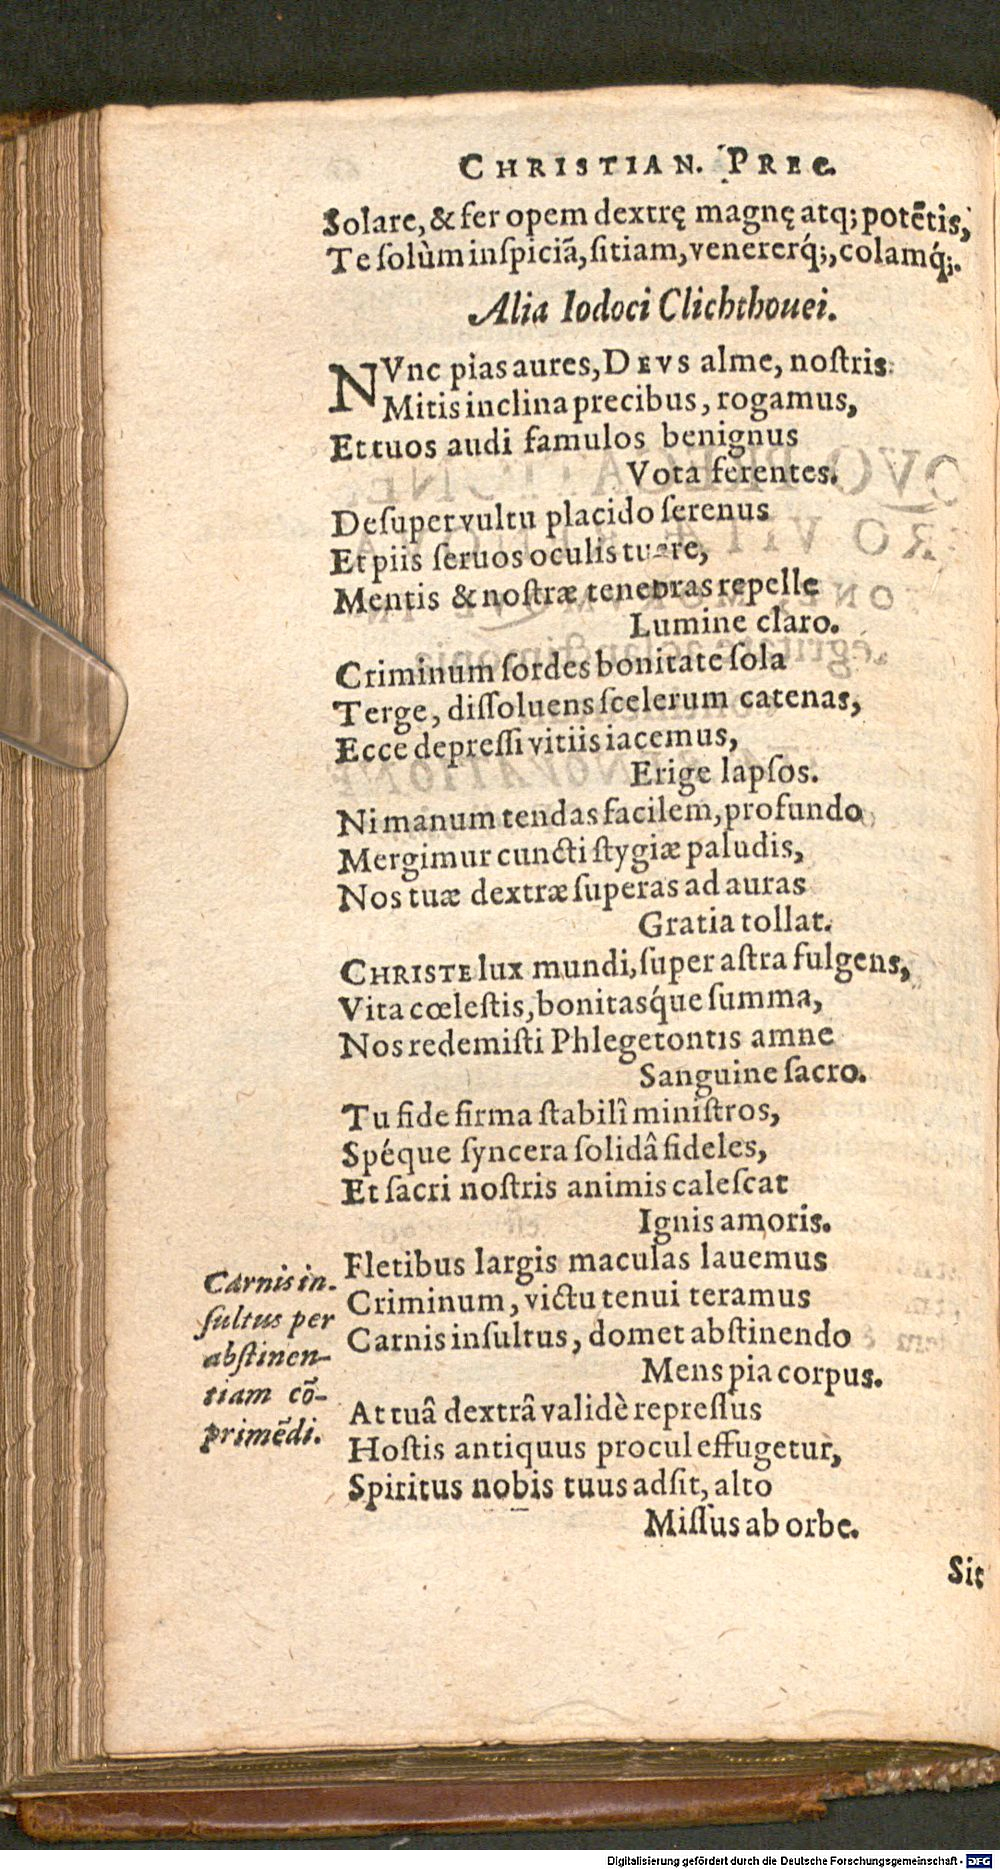 CHRISTIAN. PREC.
Solare, & fer opem dextrę magnę atq; potẽtis,
Te solùm inspiciã, sitiam, venererq́;, colamq́;.
Alia Iodoci Clichthouei.
NVnc pias aures, DEVS alme, nostris
Mitis inclina precibus, rogamus,
Et tuos audi famulos benignus
Vota ferentes.
Desuper vultu placido serenus
Et piis seruos oculis tuere,
Mentis & nostræ tenebras repelle
Lumine claro.
Criminum sordes bonitate sola
Terge, dissoluens scelerum catenas,
Ecce depressi vitiis iacemus,
Erige lapsos.
Ni manum tendas facilem, profundo
Mergimur cuncti stygiæ paludis,
Nos tuæ dextræ superas ad auras
Gratia tollat.
CHRISTE lux mundi, super astra fulgens,
Vita cœlestis, bonitasq́ue summa,
Nos redemisti Phlegetontis amne
Sanguine sacro.
Tu fide firma stabilî ministros,
Spéque syncera solidâ fideles,
Et sacri nostris animis calescat
Ignis amoris.
Fletibus largis maculas lauemus
Criminum, victu tenui teramus
Carnis insultus, domet abstinendo
Mens pia corpus.
Carnis in-
sultus per
abstinen-
tiam cõ-
primẽdi.
At tuâ dextrâ validè repressus
Hostis antiquus procul effugetur,
Spiritus nobis tuus adsit, alto
Missus ab orbe.
Sit
Digitalisierung gefördert durch die Deutsche Forschungsgemeinschaft - DFG